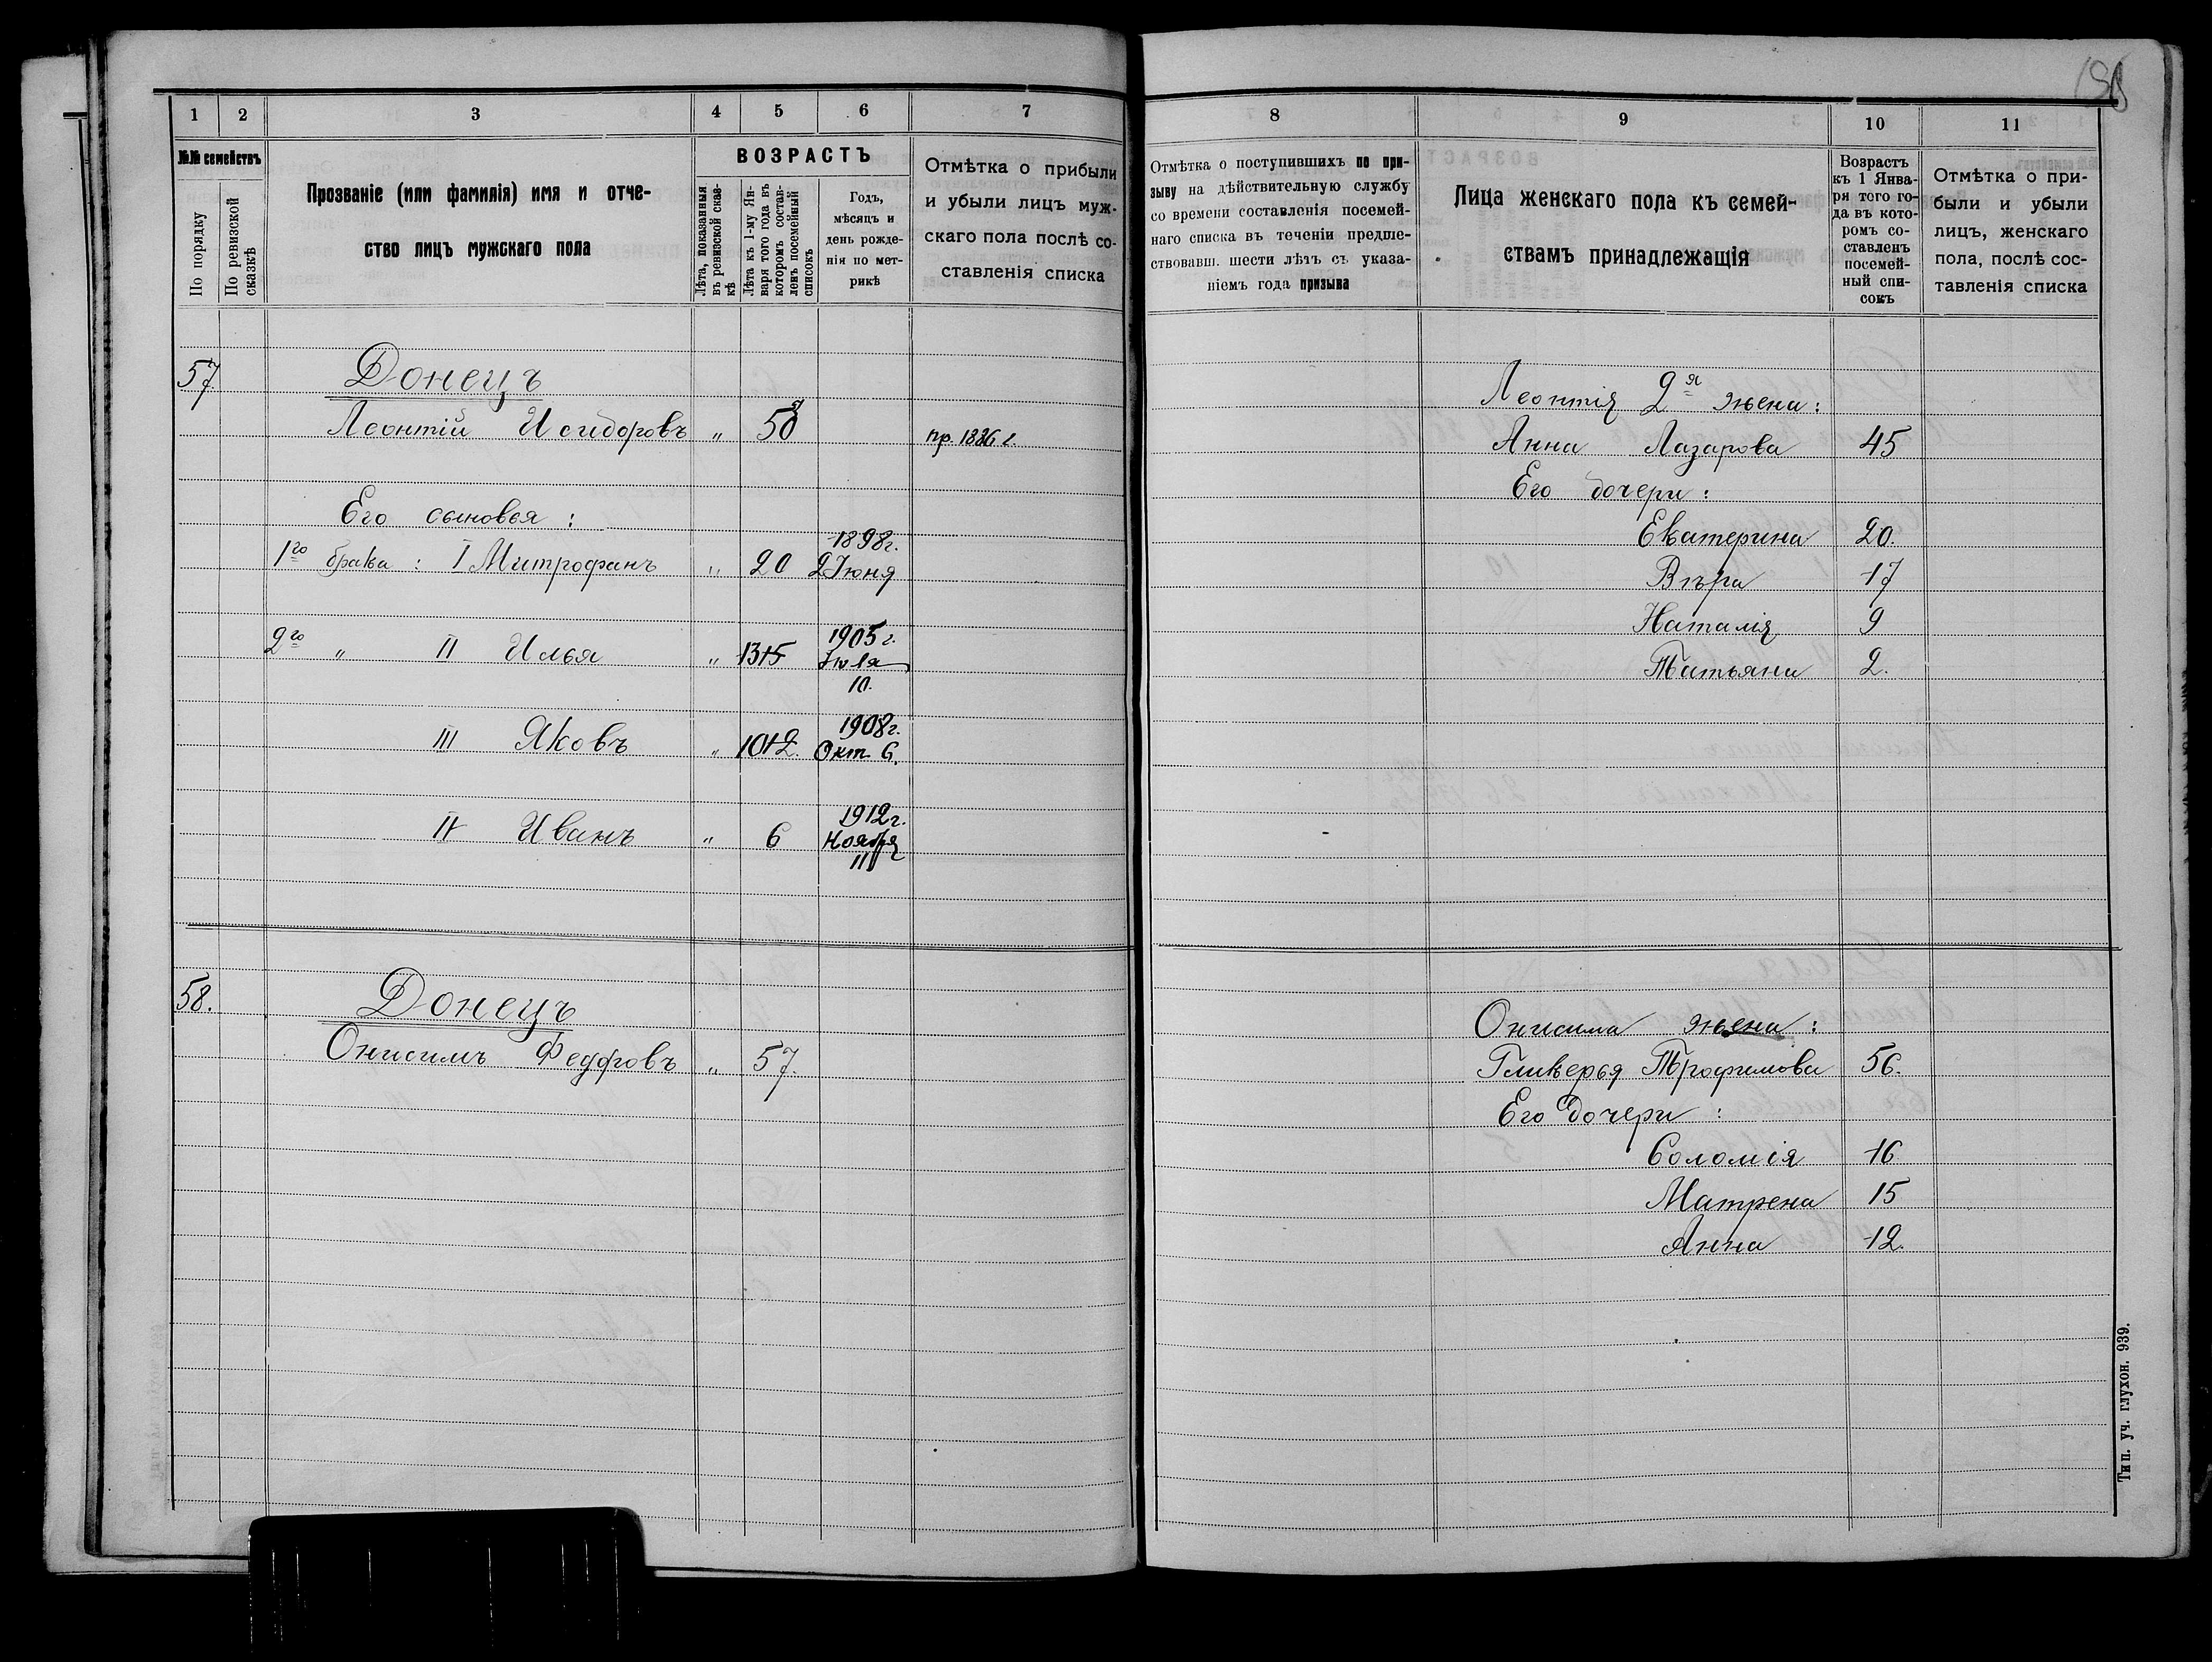 1 2 3 4 5 6 7
№№ семействъ
По порядку
По ревизской сказкѣ
Прозваніе (или фамилія) имя и отче-
ство лицъ мужскаго пола
ВОЗРАСТЪ
Лѣта, показанныя
въ ревизской сказ-
кѣ
Лѣта къ 1-му Ян-
варя того года въ
которомъ состав-
ленъ посемейный
списокъ
Годъ,
мѣсяцъ и
день рожде-
нія по мет-
рикѣ
Отмѣтка о прибыли
и убыли лицъ муж-
скаго пола послѣ со-
ставленія списка
57. Донецъ
Леонтій Исидоровъ „ пр. 1886 г.
Его сыновья:
1го брака: I Митрофанъ „ 20 1898г. 2 Іюня
2го „ II Илья „ 13 15 1905 г. Іюля 10.
III Яковъ „ 10 12. 1908г. Окт 6.
IV Иванъ „ 6 1912г. Ноября 11
58. Донецъ
Онисимъ Федоровъ „ 57.
8 9 10 11
Отмѣтка о поступившихъ по при-
зыву на дѣйствительную службу
со времени составленія посемей-
наго списка въ теченіи предше-
ствовавш. шести лѣтъ съ указа-
ніемъ года призыва
Лица женскаго пола къ семей-
ствамъ принадлежащія
Возрастъ
къ 1 Янва-
ря того го-
да въ кото-
ромъ со-
ставленъ
посемей-
ный спи-
сокъ
Отмѣтка о при-
были и убыли
лицъ, женскаго
пола, послѣ сос-
тавленія списка
Леонтія 2я жена:
Анна Лазарова 45
Его дочери:
Екатерина 20.
Вѣра 17
Наталія 9
Татьяна 2.
Онисима жена:
Гликерья Трофимова 56.
Его дочери:
Соломія 16
Матрена 15
Анна 12.
Тип. уч. глухон. 939.